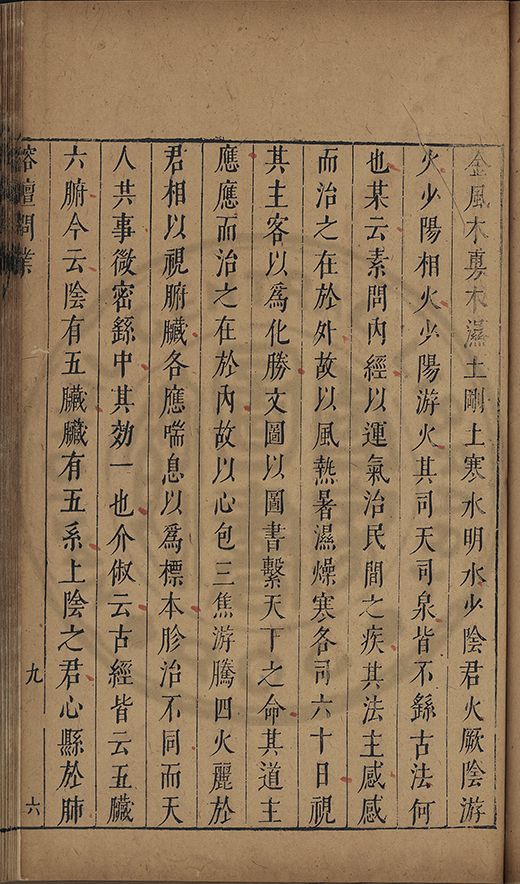 金風木巽木濕土剛土寒水明水少陰君火厥陰游
火少陽相火少陽游火其司天司泉皆不繇古法何
也某云素問內經以運氣治民間之疾其法主感感
而治之在於外故以風熱暑濕燥寒各司六十日視
其主客以爲化勝文圖以圖書繫天下之命其道主
應應而治之在於內故以心包三焦游騰四火麗於
君相以視腑臟各應喘息以爲標本胗治不同而天
人共事微密繇中其効一也介俶云古經皆云五臟
六腑今云陰有五臟臟有五系上陰之君心縣於肺
榕壇問業
九
六